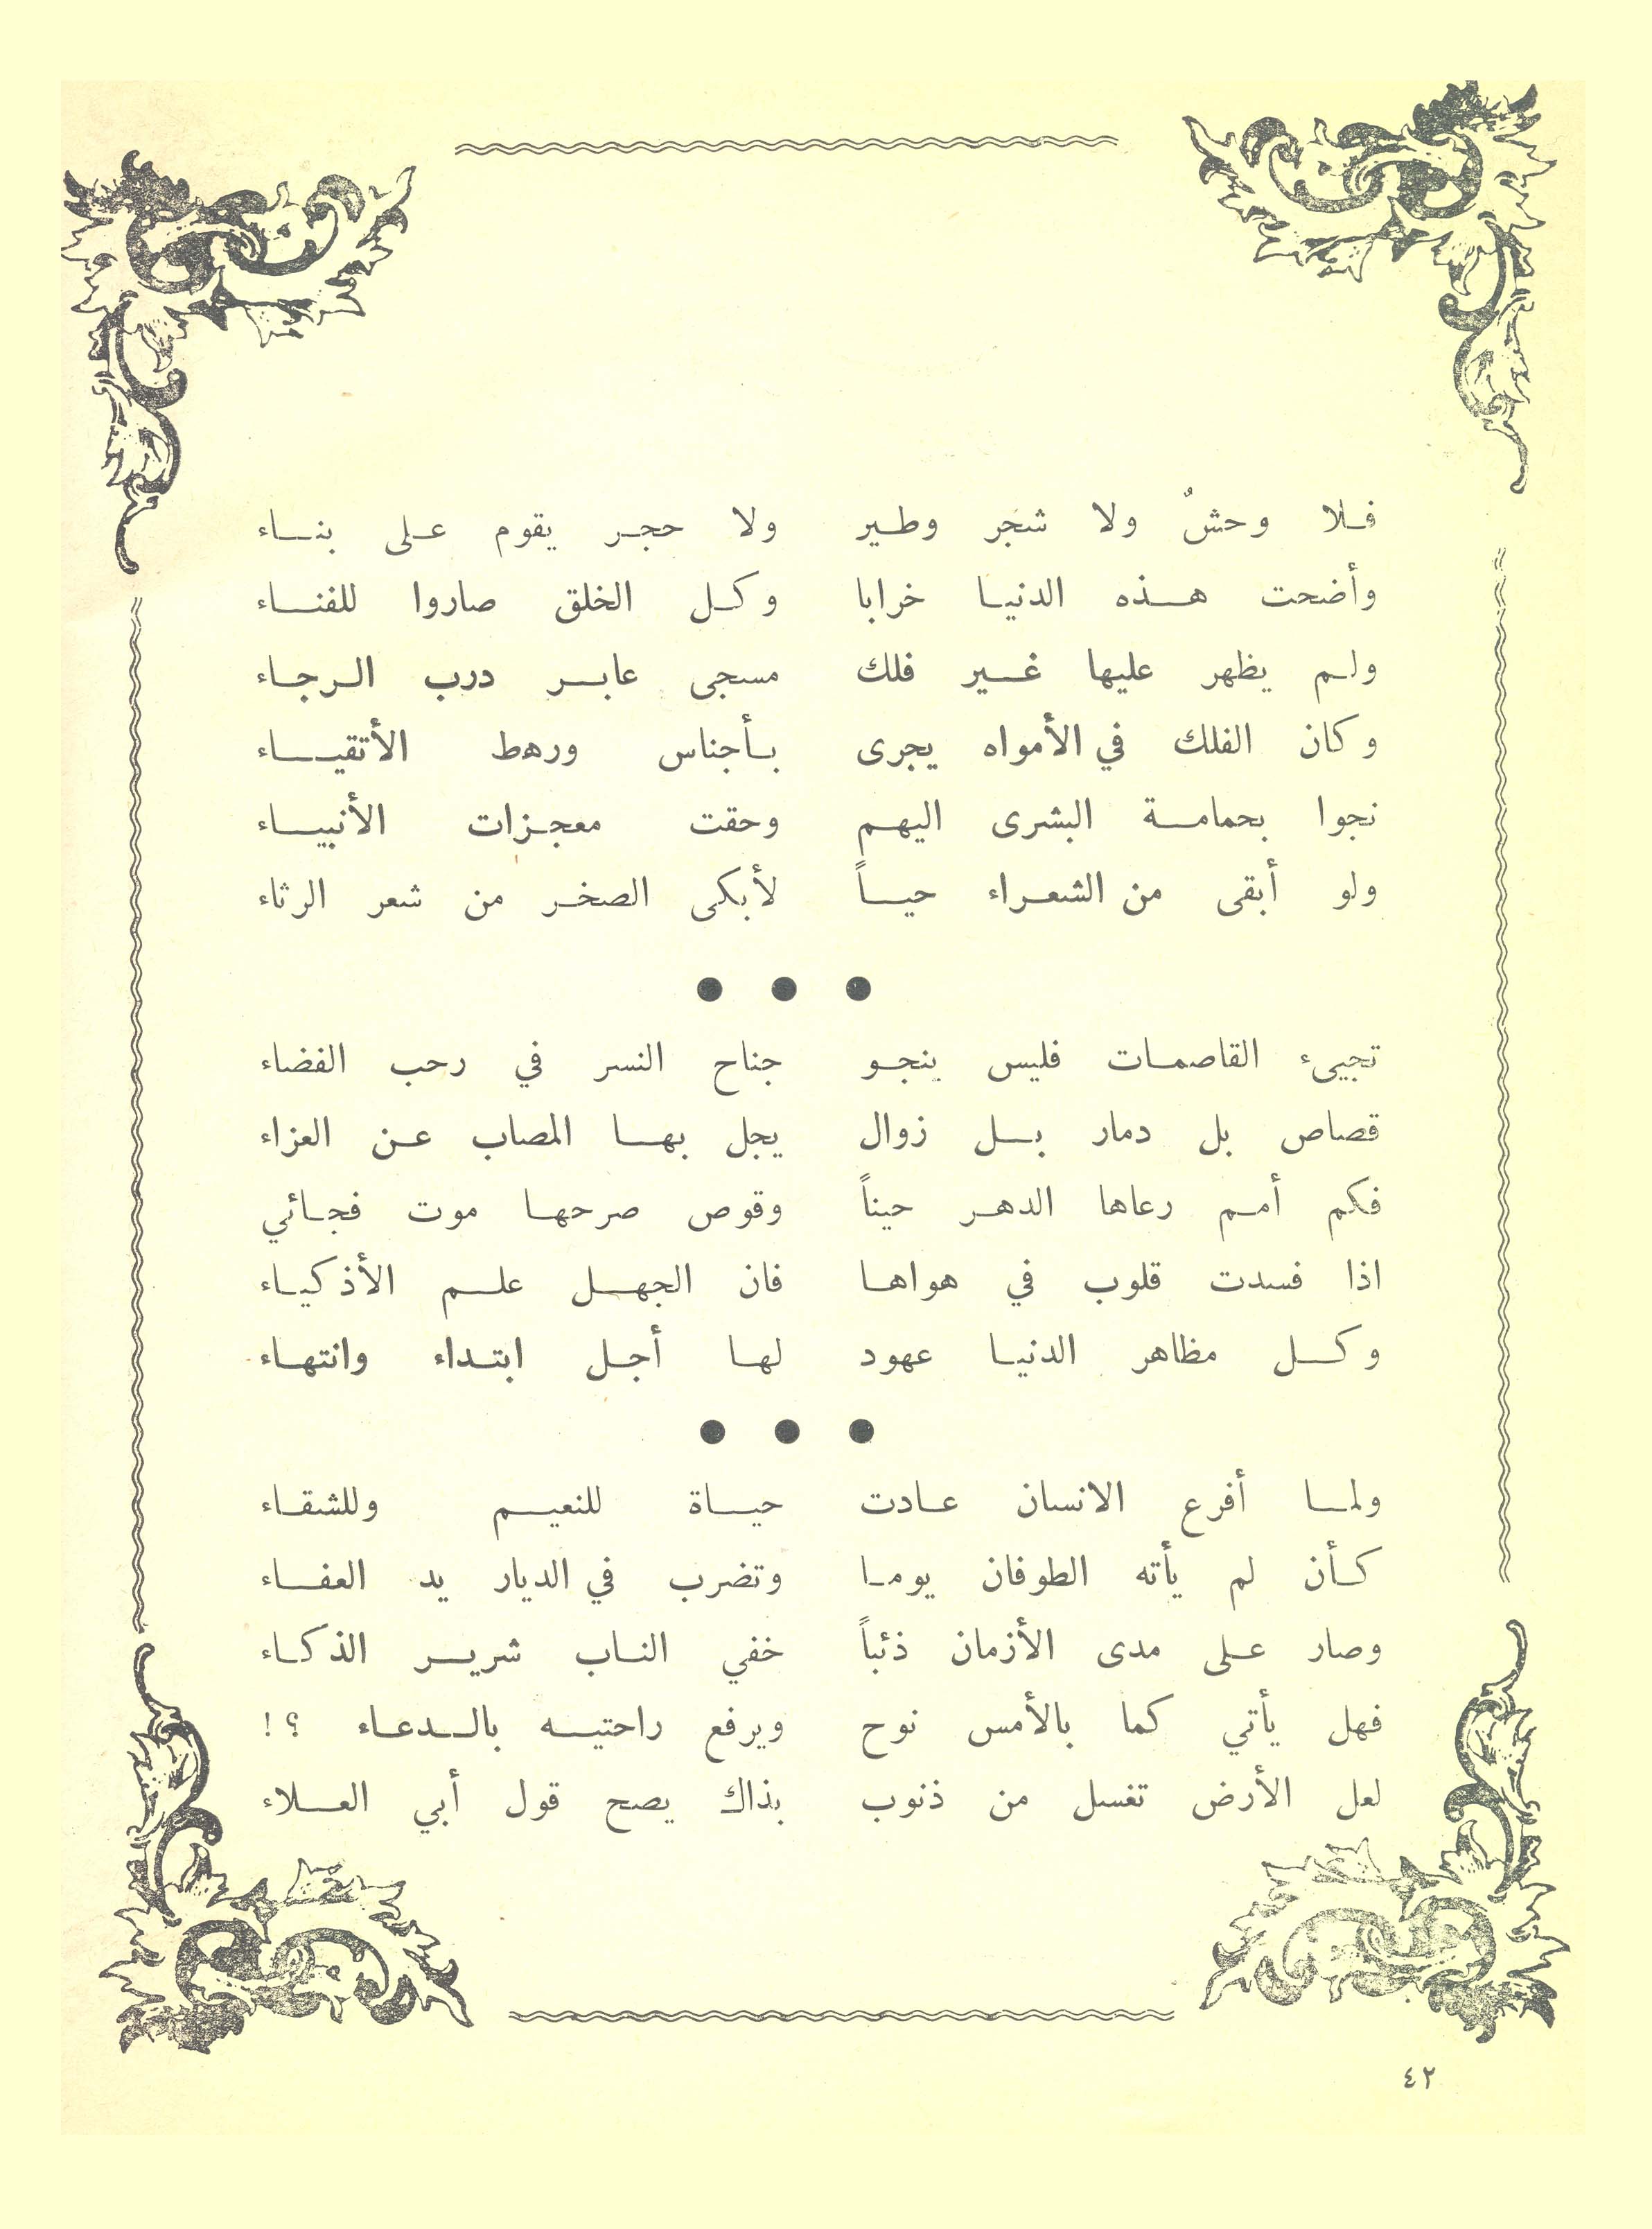 فلا وحشٌ ولا شجر وطير ولا حجر يقوم على بناء
وأضحت هذه الدنيا خرابا وكل الخلق صاروا للفناء
ولم يظهر عليها غير فلك مسجى عابر درب الرجاء
وكان الفلك في الأمواه يجرى بأجناس ورهط الأتقياء
نجوا بحمامة البشرى اليهم وحقت معجزات الأنبياء
ولو أبقى من الشعراء حياً لأبكى الصخر من شعر الرثاء
● ● ●
تجيىء القاصمات فليس ينجو جناح النسر في رحب الفضاء
قصاص بل دمار بل زوال يجل بها المصاب عن العزاء
فكم أمم رعاها الدهر حيناً وقوص صرحها موت فجائي
اذا فسدت قلوب في هواها فان الجهل علم الأذكياء
وكل مظاهر الدنيا عهود لها أجل ابتداء وانتهاء
● ● ●
ولما أفرع الانسان عادت حياة للنعيم وللشقاء
كأن لم يأته الطوفان يوما وتضرب في الديار يد العفاء
وصار على مدى الأزمان ذئباً خفي الناب شرير الذكاء
فهل يأتي كما بالأمس نوح ويرفع راحتيه بالدعاء ؟!
لعل الأرض تغسل من ذنوب بذاك يصح قول أبي العلاء
٤٢